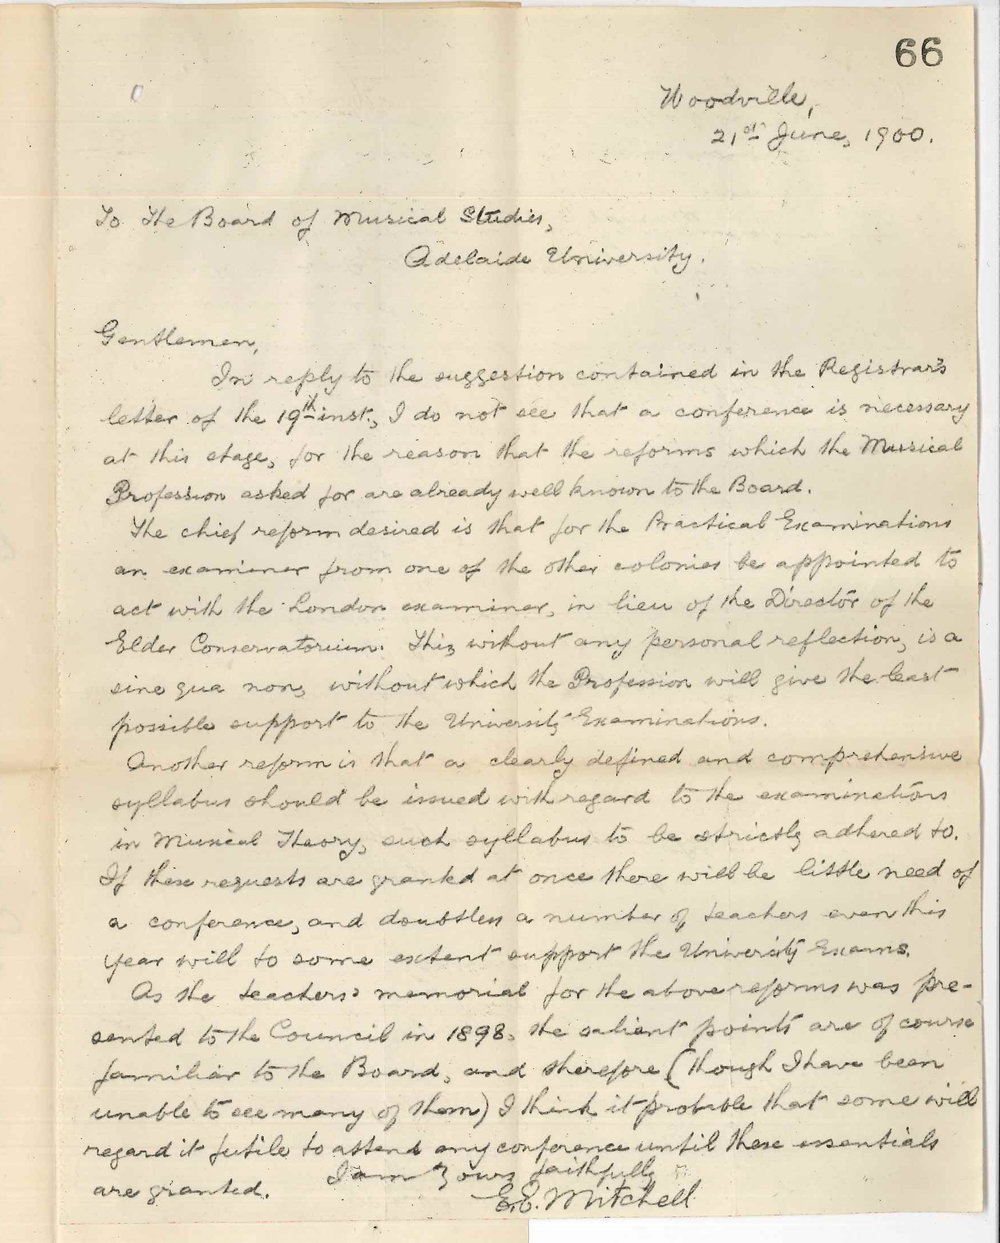 66
Woodville,
21st June, 1900.
To the Board of Musical Studies,
Adelaide University.
Gentlemen,
In reply to the suggestion contained in the Registrar's
letter of the 19th inst., I do not see that a conference is necessary
at this stage, for the reason that the reforms which the Musical
Profession asked for are already well known to the Board.
The chief reform desired is that for the Practical Examinations
an examiner from one of the other colonies be appointed to
act with the London examiner, in lieu of the Director of the
Elder Conservatorium. This, without any personal reflection, is a
sine qua non, without which the Profession will give the least
possible support to the University Examinations.
Another reform is that a clearly defined and comprehensive
syllabus should be issued with regard to the examinations
in Musical Theory, such syllabus to be strictly adhered to.
If these requests are granted at once there will be little need of
a conference, and doubtless a number of teachers even this
year will to some extent support the University Exams.
As the teachers' memorial for the above reforms was pre-
sented to the Council in 1898, the salient points are of course
familiar to the Board, and therefore (though I have been
unable to see many of them) I think it probable that some will
regard it futile to attend any conference until these essentials
are granted. I am Yours faithfully
E.E. Mitchell